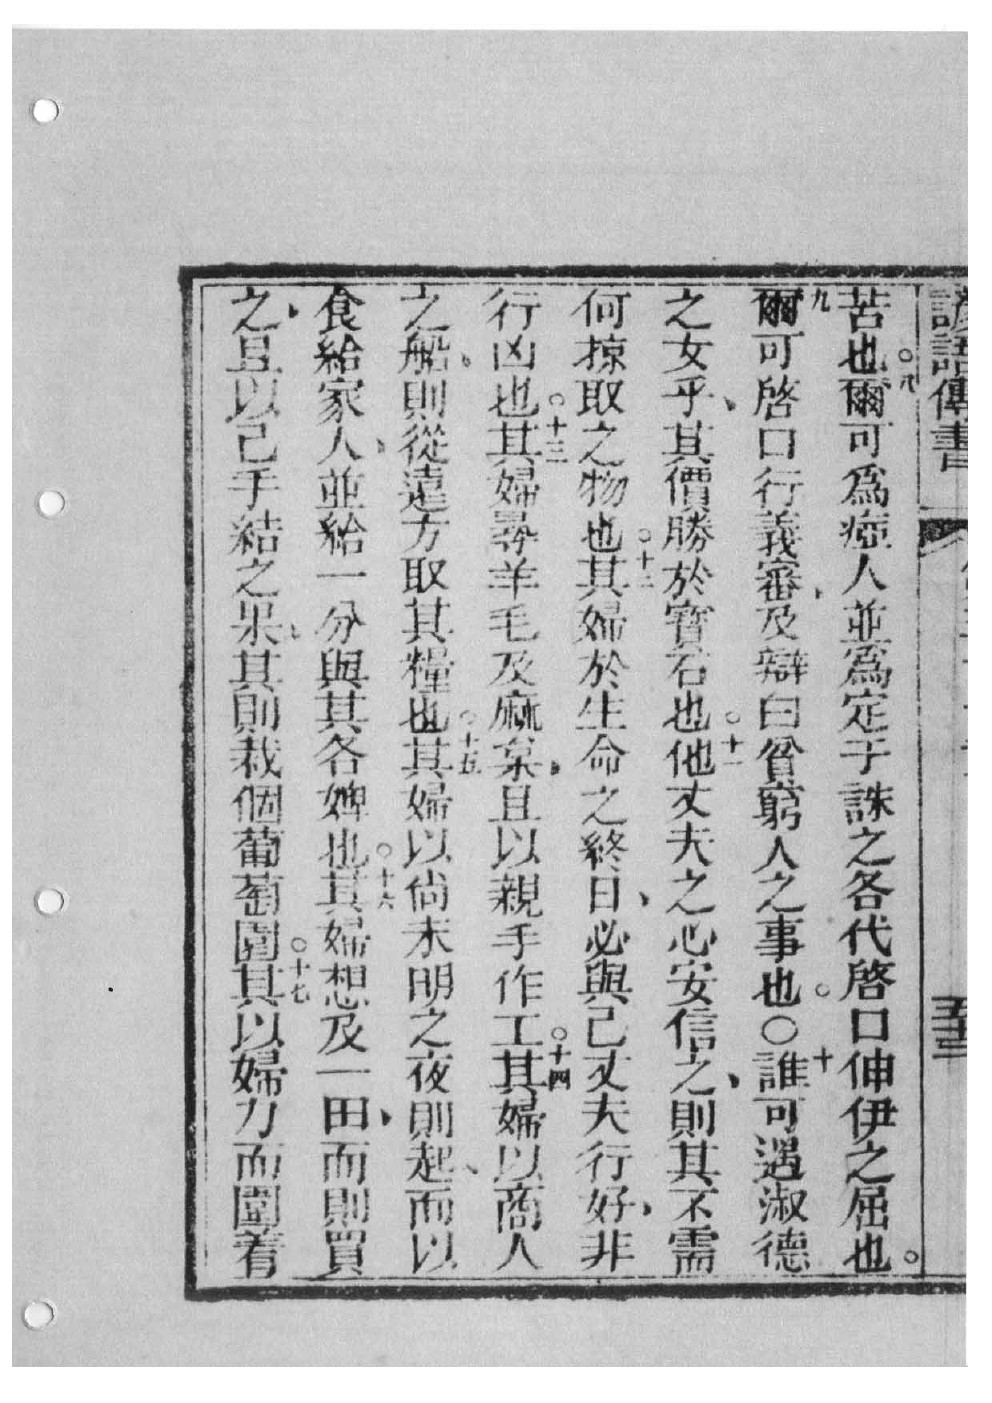 諺語傳書
五十三
苦也○八爾可爲瘂人並爲定于誅之各代啓口伸伊之屈也。
九爾可啓口行義審、及辯曰貧窮人之事也。○十誰可遇淑德
之女乎、其價勝於寶石也○十一他丈夫之心安信之、則其不需
何掠取之物也○十二其婦於生命之終日、必與己丈夫行好、非
行凶也○十三其婦尋羊毛及麻枲、且以親手作工○十四其婦以商人
之船、則從遠方取其糧也○十五其婦以尚未明之夜則起、而以
食給家人、並給一分與其各婢也○十六其婦想及一田、而則買
之、且以己手結之果、其則栽個葡萄園○十七其以婦力而圍着